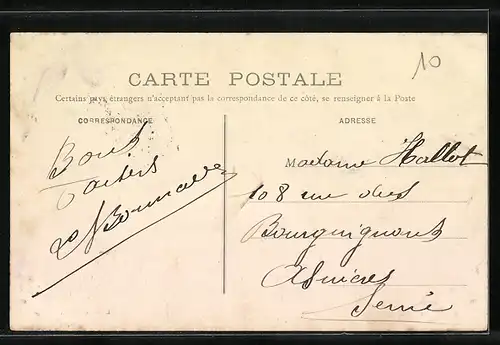 10
CARTE POSTALE
Certains pays étrangers n'acceptant pas la correspondance de ce côté, se renseigner à la Poste
CORRESPONDANCE
ADRESSE
Bons
Baisers
Madame Hallot
108 rue des
Bourguignons
Asnières
Seine